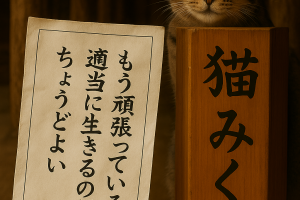 もう頑張っている
適当に生きるの
ちょうどよい
猫みく